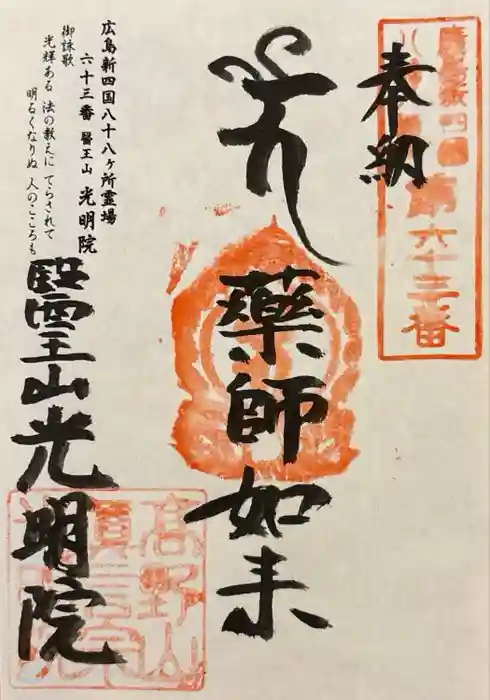 奉納
廣島新四國
八十八ヶ所
第六十三番
藥師如来
広島新四国八十八ヶ所霊場
六十三番 醫王山 光明院
御詠歌
光輝ある 法の教えに てらされて
明るくなりぬ 人のこころも
醫王山光明院
高野山